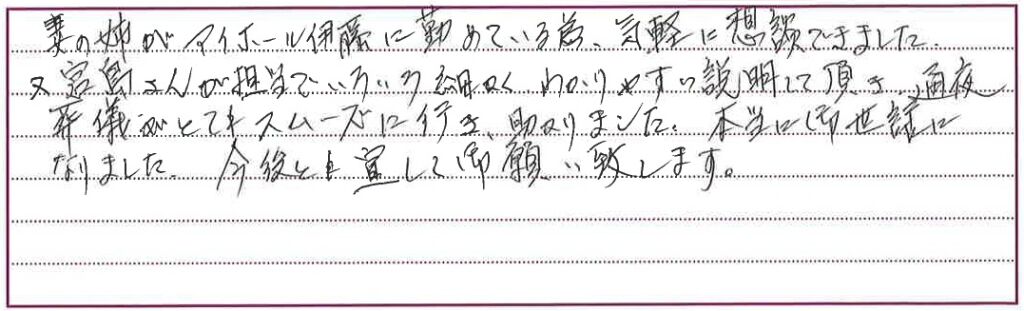 妻の姉がアイホール伊藤に勤めている為、気軽に想談できました。
又宮島さんが担当でいろいろ細かく、わかりやすい説明して頂き、通夜
葬儀がとてもスムーズに行き、助かりました。本当に御世話に
なりました。今後とも宜しく御願い致します。